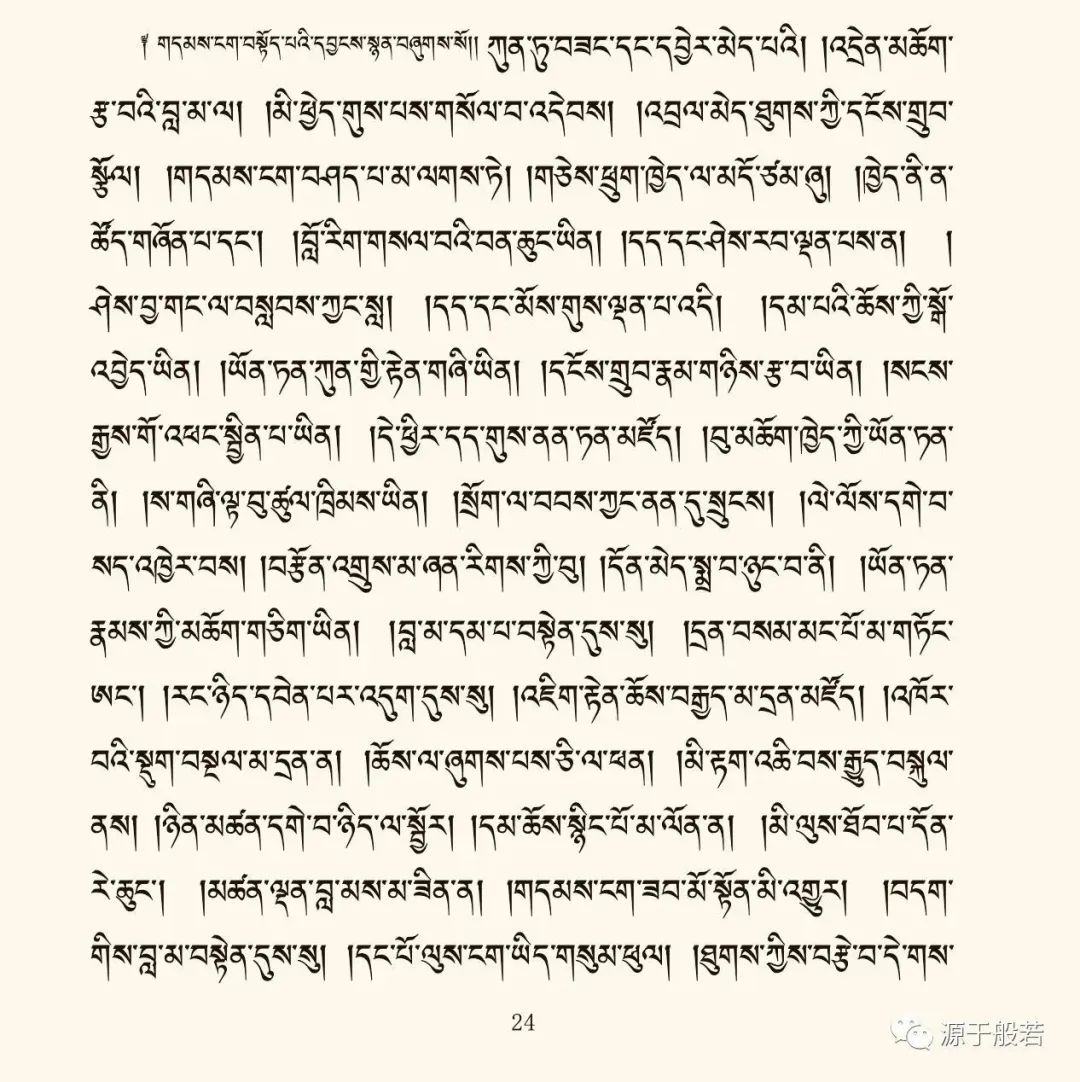 ༈ གདམས་ངག་བསྟོད་པའི་དབྱངས་སྙན་བཞུགས་སོ།། ཀུན་ཏུ་བཟང་དང་དབྱེར་མེད་པའི། །འདྲེན་མཆོག་
རྩ་བའི་བླ་མ་ལ། །མི་ཕྱེད་གུས་པས་གསོལ་བ་འདེབས། །འབྲལ་མེད་ཐུགས་ཀྱི་དངོས་གྲུབ་
སྩོལ། །གདམས་ངག་བཤད་པ་མ་ལགས་ཏེ། །གཅེས་ཕྲུག་ཁྱེད་ལ་མདོ་ཙམ་ཞུ། །ཁྱེད་ནི་ན་
ཚོད་གཞོན་པ་དང་། །བློ་རིག་གསལ་བའི་བན་ཆུང་ཡིན། །དད་དང་ཤེས་རབ་ལྡན་པས་ན། །
ཤེས་བྱ་གང་ལ་བསླབས་ཀྱང་སླ། །དད་དང་མོས་གུས་ལྡན་པ་འདི། །དམ་པའི་ཆོས་ཀྱི་སྒོ་
འབྱེད་ཡིན། །ཡོན་ཏན་ཀུན་གྱི་རྟེན་གཞི་ཡིན། །དངོས་གྲུབ་རྣམ་གཉིས་རྩ་བ་ཡིན། །སངས་
རྒྱས་གོ་འཕང་སྦྱིན་པ་ཡིན། །དེ་ཕྱིར་དད་གུས་ནན་ཏན་མཛོད། །བུ་མཆོག་ཁྱེད་ཀྱི་ཡོན་ཏན་
ནི། །ས་གཞི་ལྟ་བུ་ཚུལ་ཁྲིམས་ཡིན། །སྲོག་ལ་བབས་ཀྱང་ནན་དུ་སྲུངས། །ལེ་ལོས་དགེ་བ་
སད་འཁྱེར་བས། །བརྩོན་འགྲུས་མ་ཞན་རིགས་ཀྱི་བུ། །དོན་མེད་སྨྲ་བ་ཉུང་བ་ནི། །ཡོན་ཏན་
རྣམས་ཀྱི་མཆོག་གཅིག་ཡིན། །བླ་མ་དམ་པ་བསྟེན་དུས་སུ། །དྲན་བསམ་མང་པོ་མ་གཏོང་
ཨང་། །རང་ཉིད་དབེན་པར་འདུག་དུས་སུ། །འཇིག་རྟེན་ཆོས་བརྒྱད་མ་དྲན་མཛོད། །འཁོར་
བའི་སྡུག་བསྔལ་མ་དྲན་ན། །ཆོས་ལ་ཞུགས་པས་ཅི་ལ་ཕན། །མི་རྟག་འཆི་བས་རྒྱུད་བསྐུལ་
ནས། །ཉིན་མཚན་དགེ་བ་ཉིད་ལ་སྦྱོར། །དམ་ཆོས་སྙིང་པོ་མ་ལོན་ན། །མི་ལུས་ཐོབ་པ་དོན་
རེ་ཆུང་། །མཚན་ལྡན་བླ་མས་མ་ཟིན་ན། །གདམས་ངག་ཟབ་མོ་སྟོན་མི་འགྱུར། །བདག་
གིས་བླ་མ་བསྟེན་དུས་སུ། །དང་པོ་ལུས་ངག་ཡིད་གསུམ་ཕུལ། །ཐུགས་ཀྱིས་བརྩེ་བ་དེ་གས་
24
源于般若